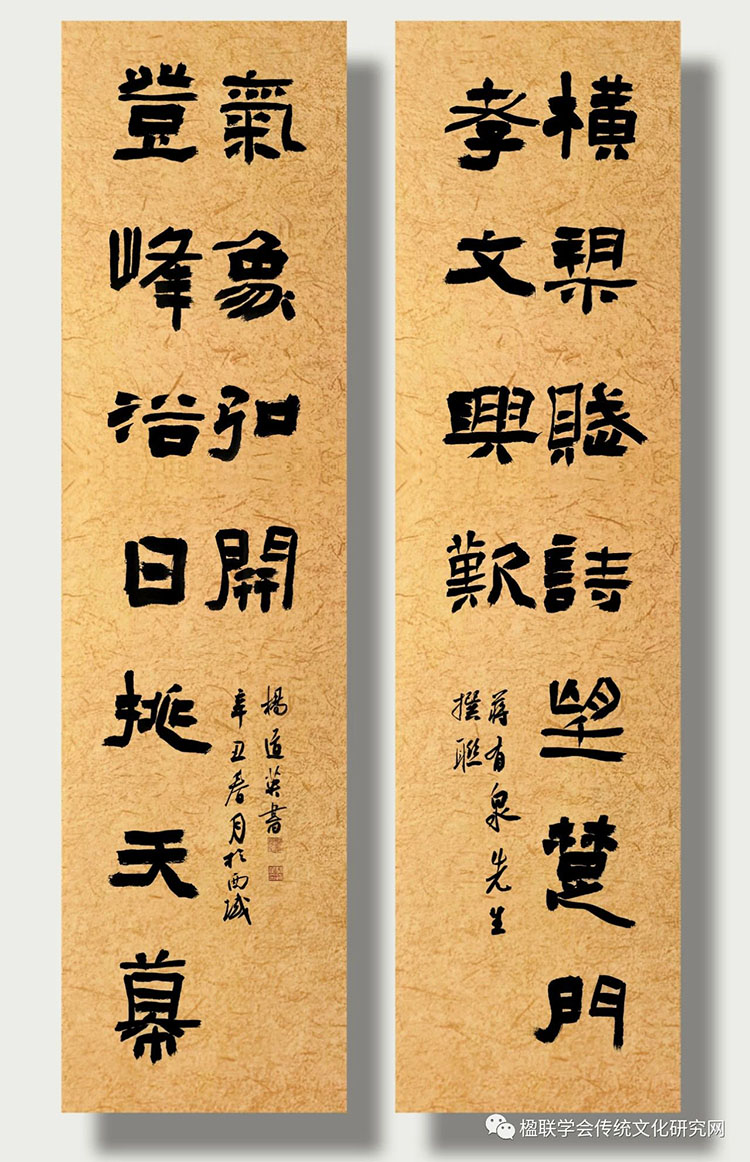 橫槊賦詩望楚門
孝文興歎
蔣有泉先生
撰聯
登峰浴日挑天幕
氣象弘開
楊道英書
辛丑春月於西域
楹联学会传统文化研究网